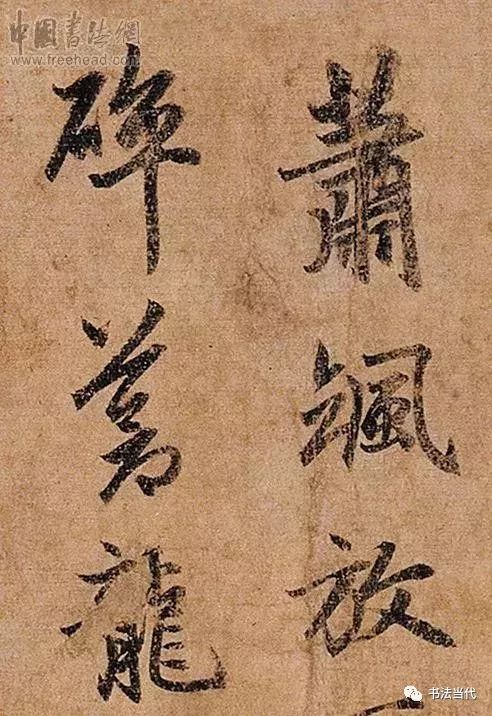 中國書法網
www.freehead.com
蕭颯放
碎蒼龍
书法当代